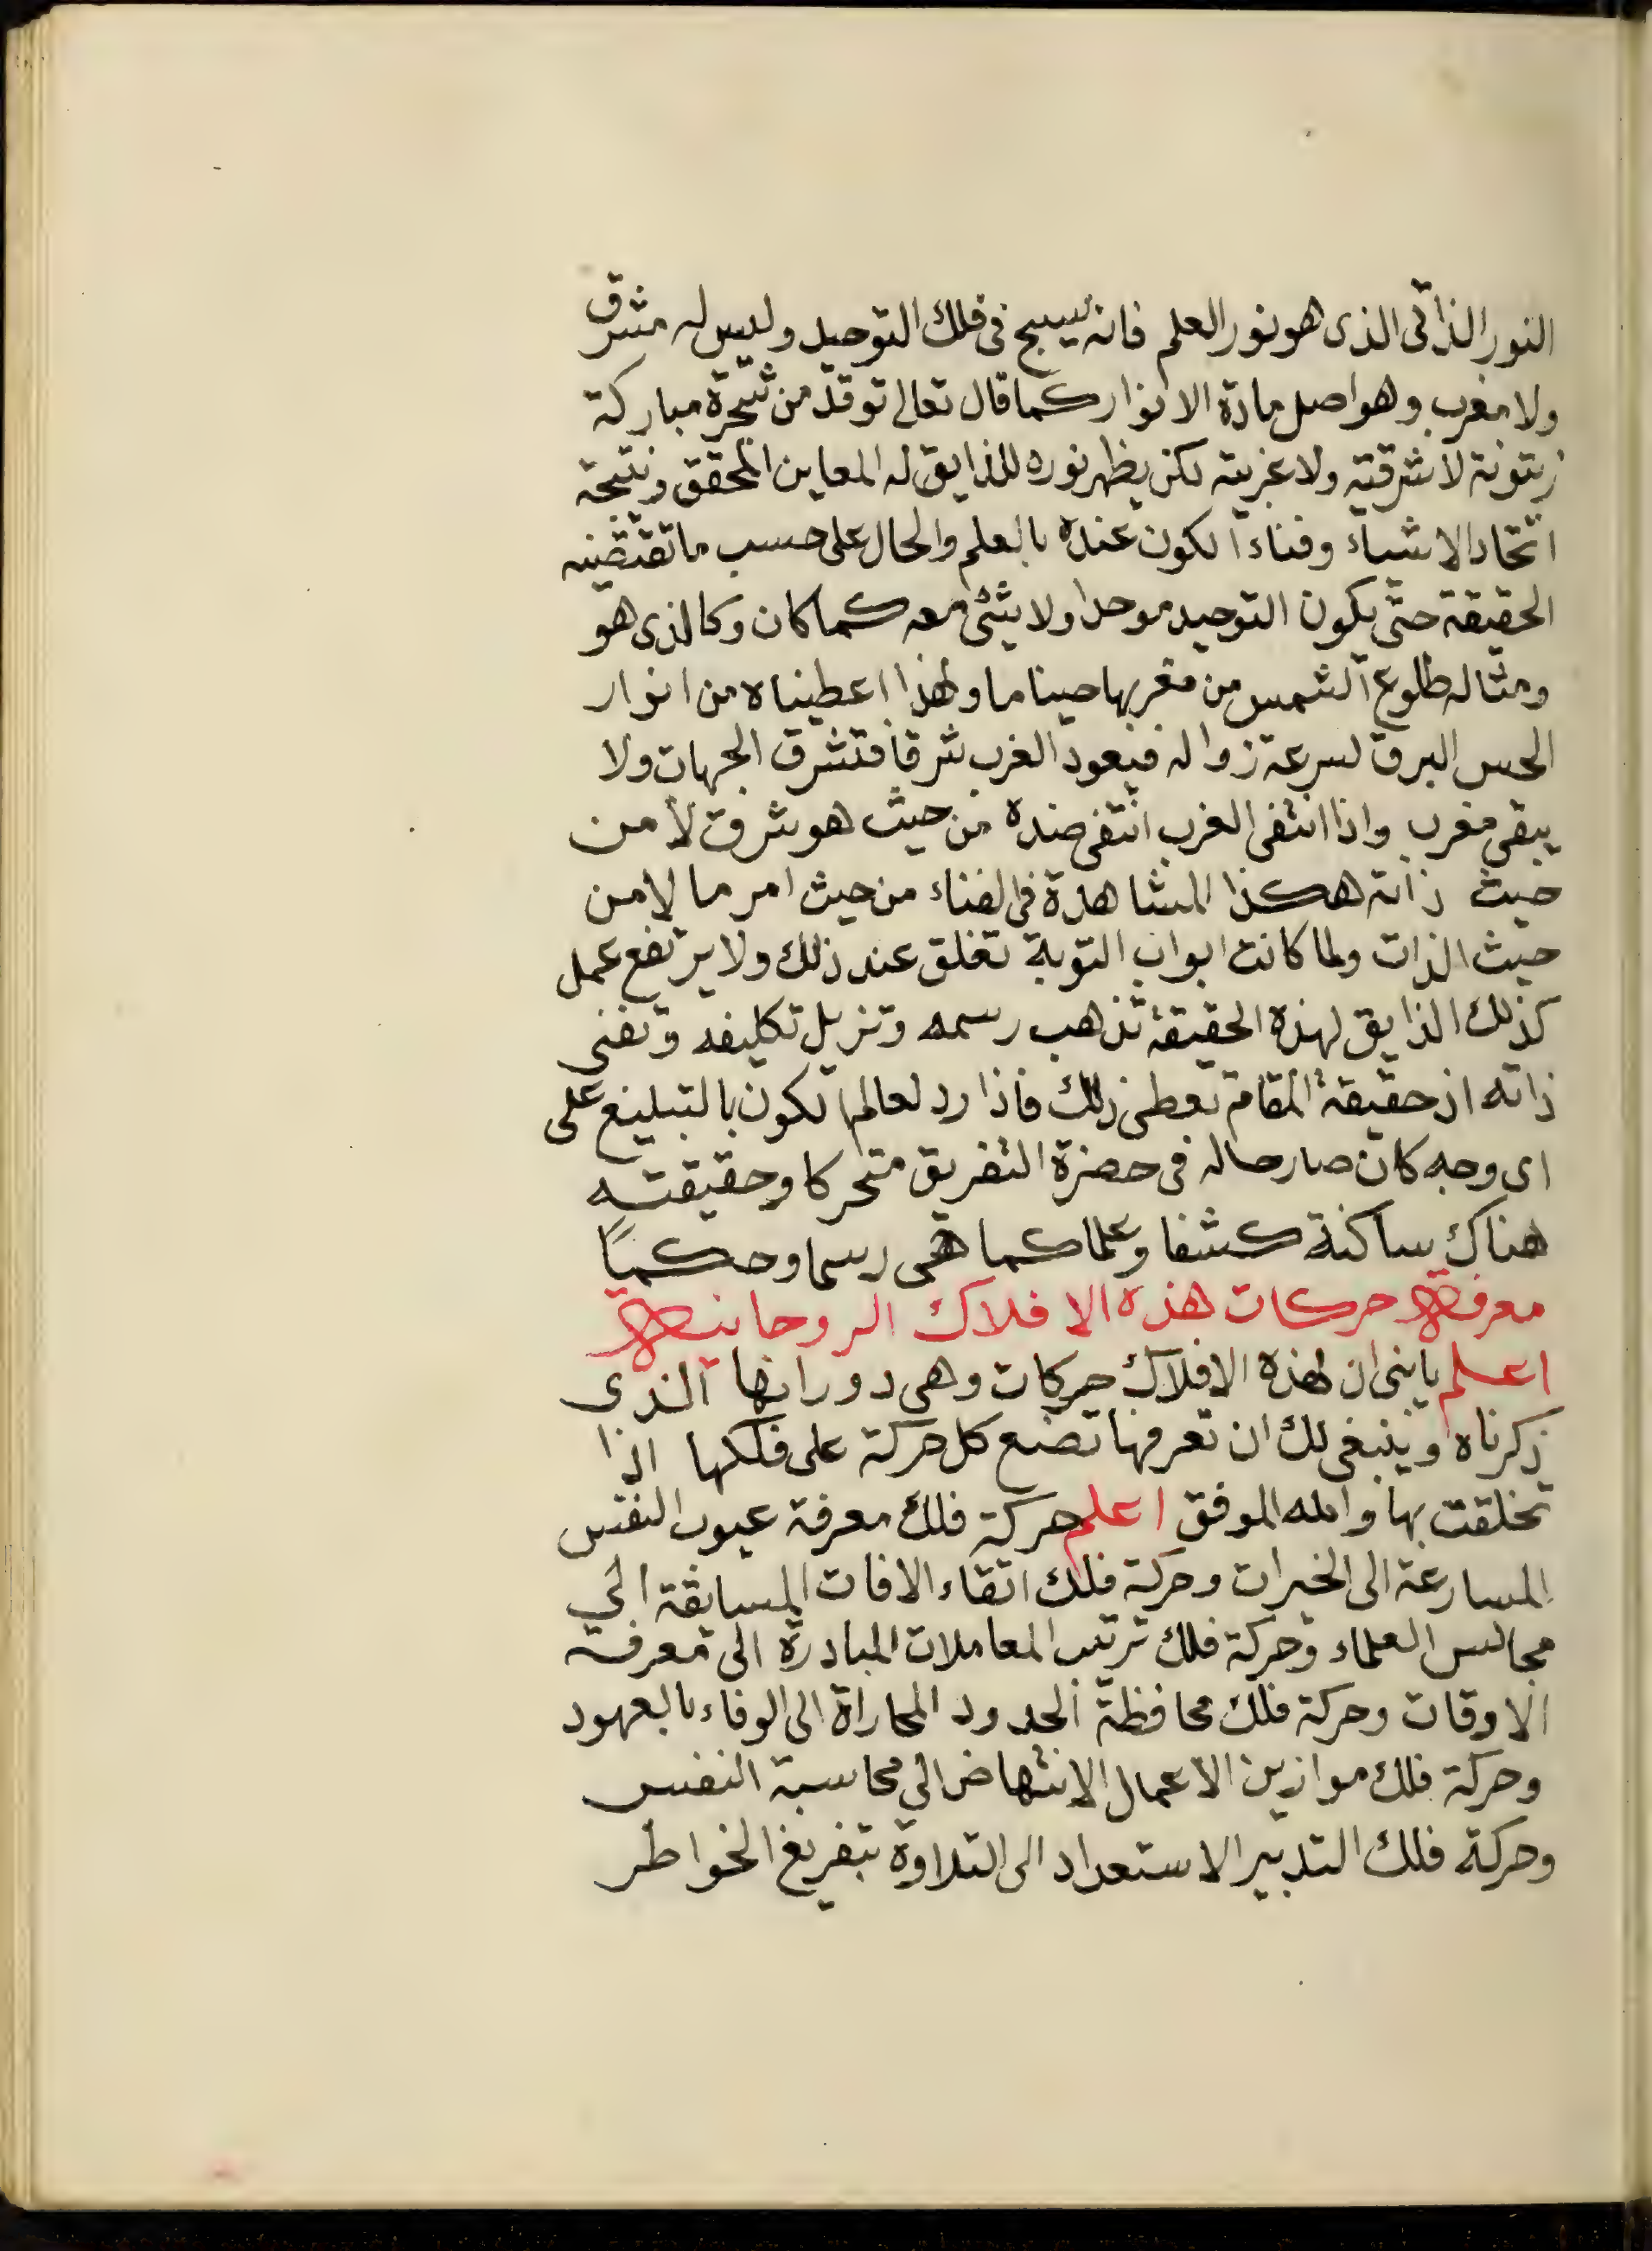 النور الذاتى الذى هو نور العلم فانه يسبح فى فلك التوحيد وليس له مشرق
ولا مغرب وهو اصل مادة الانوار كما قال تعالى توقد من شجرة مباركة
زيتونة لا شرقية ولا غربية لكن يظهر نوره للذايق له المعاين المحقق ونتيجة
اتحاد الاشياء وفناء الكون عنده بالعلم والحال على حسب ما تقتضيه
الحقيقة حتى يكون التوحيد موحدا ولا شئ معه كما كان وكالذى هو
ومثاله طلوع الشمس من مغربها حينا ما ولهذا اعطيناه من انوار
الحس البرق لسرعة زواله فيعود الغرب شرقا فتشرق الجهات ولا
يبقى مغرب واذا انتفى الغرب انتفى ضده من حيث هو شرق لا من
حيث ذاته هكذا المشاهدة فى الفناء من حيث امر ما لا من
حيث الذات ولما كانت ابواب التوبة تغلق عند ذلك ولا يرتفع عمل
كذلك الذايق لهذه الحقيقة تذهب رسمه وتزيل تكليفه وتفنى
ذاته اذ حقيقة المقام تعطى ذلك فاذا رد لعالم الكون بالتبليغ على
اى وجه كان صار حاله فى حضرة التفريق متحركا وحقيقته
هناك ساكنة كشفا وعلما كما هى رسما وحكما
معرفة حركات هذه الافلاك الروحانية
اعلم يا بنى ان لهذه الافلاك حركات وهى دورانها الذى
ذكرناه وينبغى لك ان تعرفها تضع كل حركة على فلكها اذا
تخلقت بها والله الموفق اعلم حركة فلك معرفة عيوب النفس
المسارعة الى الخيرات وحركة فلك اتقاء الافات المسابقة الى
مجالس العلماء وحركة فلك ترتيب المعاملات المبادرة الى معرفة
الاوقات وحركة فلك محافظة الحدود المجاراة الى الوفاء بالعهود
وحركة فلك موازين الاعمال الانتهاض الى محاسبة النفس
وحركة فلك التدبير الاستعداد الى التلاوة بتفريغ الخواطر